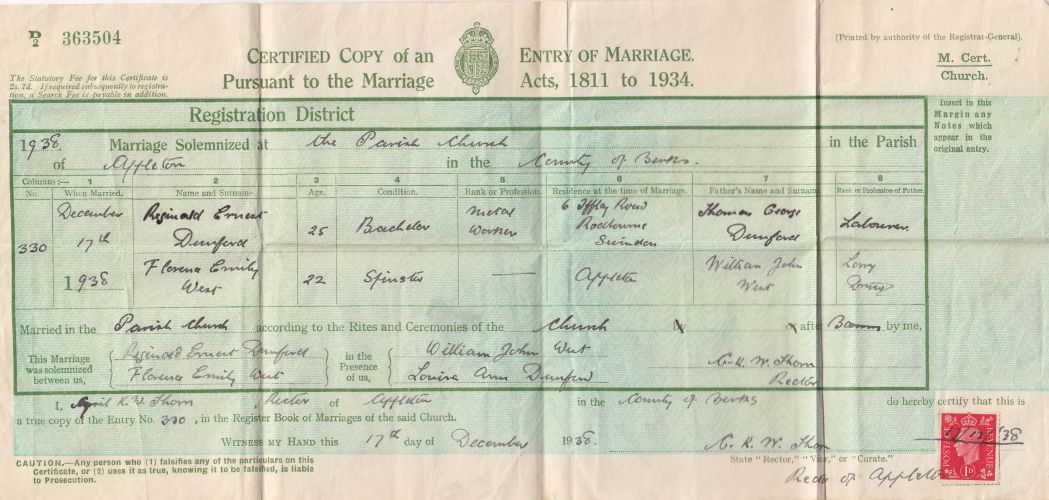 D/2 363504
[Printed by authority of the Registrar-General].
CERTIFIED COPY of an ENTRY OF MARRIAGE.
Pursuant to the Marriage Acts, 1811 to 1934.
M. Cert.
Church.
The Statutory Fee for this Certificate is
2s. 7d. If required subsequently to registra-
tion, a Search Fee is payable in addition.
Registration District
Insert in this
Margin any
Notes which
appear in the
original entry.
1938. Marriage Solemnized at the Parish Church in the Parish
of Appleton in the County of Berks.
Columns :— 1 2 3 4 5 6 7 8
No. When Married. Name and Surname. Age. Condition. Rank or Profession. Residence at the time of Marriage. Father's Name and Surname Rank or Profession of Father.
330 December 17th 1938
Reginald Ernest Dunford 25 Bachelor Metal Worker 6 Iffley Road Rodbourne Swindon Thomas George Dunford Labourer
Florence Emily West 22 Spinster — Appleton William John West Lorry
Married in the Parish Church according to the Rites and Ceremonies of the Church after Banns by me,
This Marriage
was solemnized
between us,
Reginald Ernest Dunford
Florence Emily West
in the
Presence
of us,
William John West
Louisa Ann Dunford
C. K. W. Thorn
Rector
I, K. W. Thorn, Rector of Appleton in the County of Berks do hereby certify that this is
a true copy of the Entry No. 330, in the Register Book of Marriages of the said Church.
WITNESS MY HAND this 17th day of December 1938.
C. K. W. Thorn
State "Rector," "Vicar," or "Curate."
of Appleton
17/12/38
POSTAGE REVENUE
1D
CAUTION.—Any person who (1) falsifies any of the particulars on this
Certificate, or (2) uses it as true, knowing it to be falsified, is liable
to Prosecution.